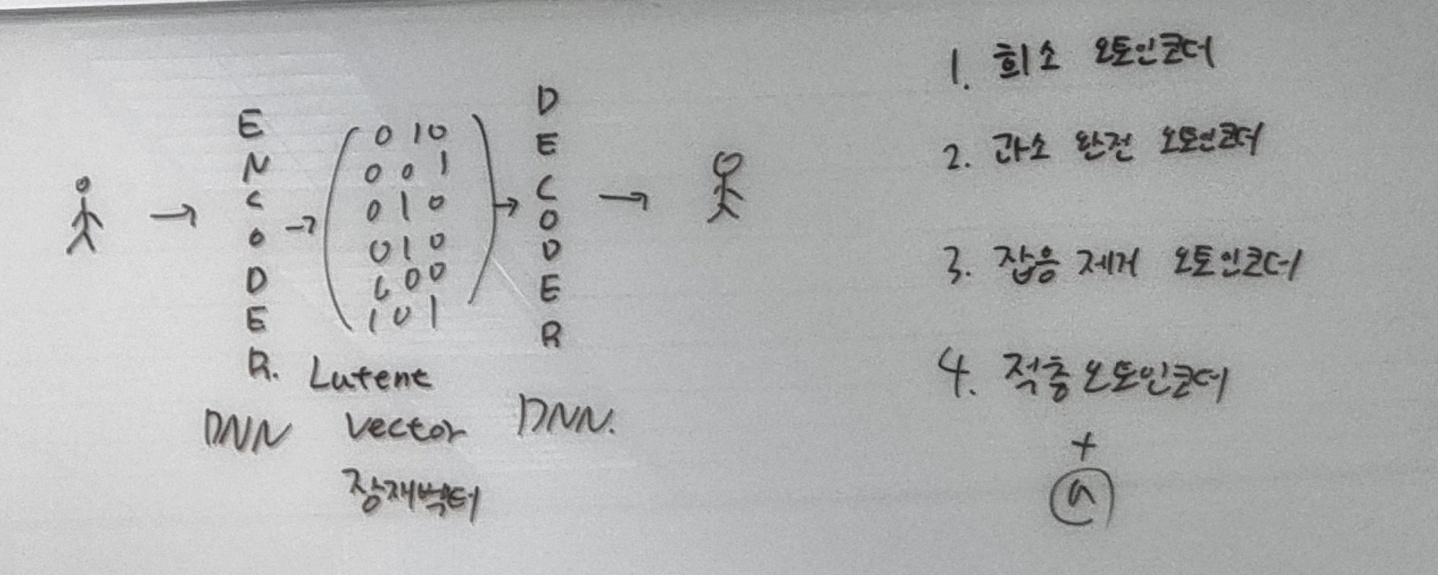 ENCODER.
0 10
0 0 1
0 1 0
0 1 0
1 0 0
1 0 1
DECODER
Lutent
DNN vector DNN.
잠재벡터
1. 희소 오토인코더
2. 과소 완전 오토인코더
3. 잡음 제거 오토인코더
4. 적층 오토인코더
+
a